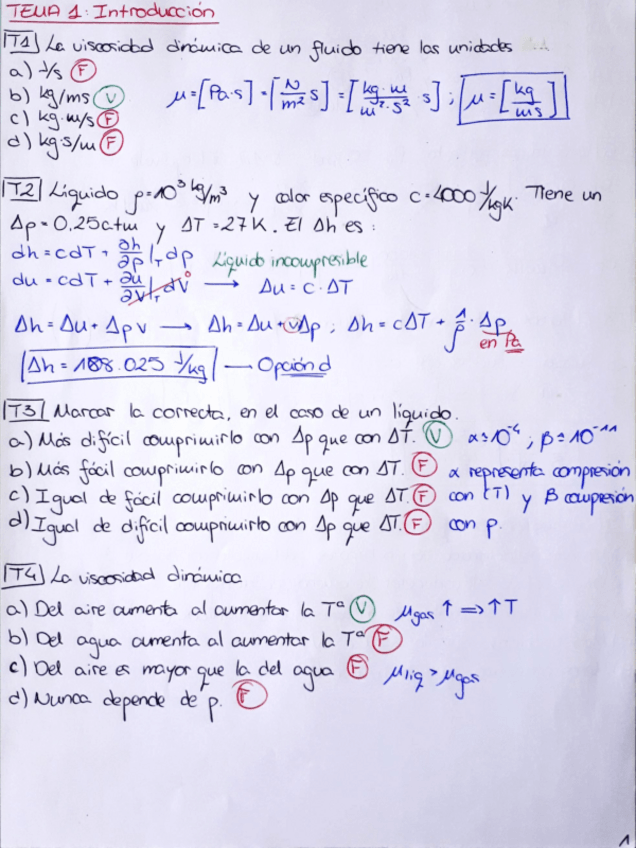 TEMA 1: Introducción
T1 La viscosidad dinámica de un fluido tiene las unidades
a) J/s F
b) kg/ms V μ = [Pa·s] = [N/m² s] = [kg·m/m²·s² · s] ; μ = [kg/ms]
c) kg·m/s F
d) kg·s/m F
T2 Líquido ρ=10³ kg/m³ y calor específico c=4000 J/kgK. Tiene un
Δp = 0,25 atm y ΔT = 27K. El Δh es:
dh = cdT + ∂h/∂p|T dp Líquido incompresible
du = cdT + ∂u/∂V|T dV⁰ → Δu = c·ΔT
Δh = Δu + Δp v → Δh = Δu + vΔp ; Δh = cΔT + 1/ρ · Δp
en Pa
Δh = 108.025 J/kg — Opción d
T3 Marcar la correcta, en el caso de un líquido.
a) Más difícil comprimirlo con Δp que con ΔT. V α≃10⁻⁴ ; β≃10⁻¹¹
b) Más fácil comprimirlo con Δp que con ΔT. F α representa compresión
c) Igual de fácil comprimirlo con Δp que ΔT. F con (T) y β compresión
d) Igual de difícil comprimirlo con Δp que ΔT. F con p.
T4 La viscosidad dinámica
a) Del aire aumenta al aumentar la Tª V μgas ↑ ⇒ ↑T
b) Del agua aumenta al aumentar la Tª F
c) Del aire es mayor que la del agua F μliq > μgas
d) Nunca depende de p. F
1